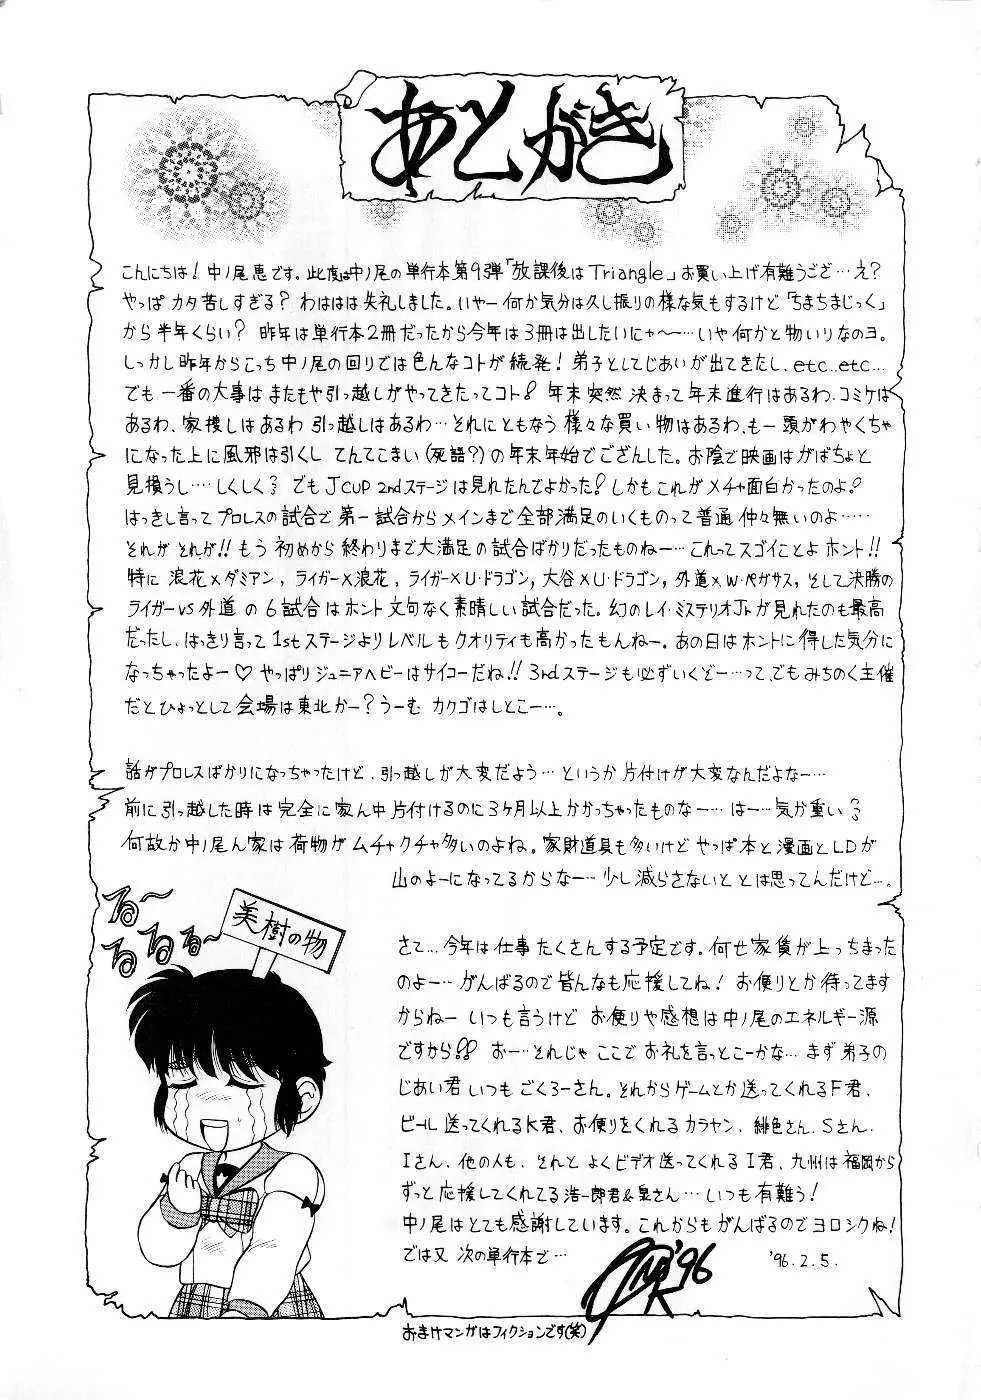 あとがき
こんにちは!中ノ尾恵です。此度は中ノ尾の単行本第9弾「放課後はTriangle」お買い上げ有難うござ…え?
やっぱ カタ苦しすぎる? わははは失礼しました。いやー何か気分は久し振りの様な気もするけど「ちまちまじっく」
から半年くらい? 昨年は単行本2冊だったから今年は3冊は出したいにゃ〜〜…いや何かと物いりなのヨ。
しっかし昨年からこっち中ノ尾の回りでは色んなコトが続発!弟子としてじあいが出てきたし、etc..etc...
でも一番の大事はまたもや引っ越しがやってきたってコト! 年末突然決まって年末進行はあるわ、コミケは
あるわ、家捜しはあるわ引っ越しはあるわ…それにともなう様々な買い物はあるわ、もー頭がわやくちゃ
になった上に風邪は引くし てんてこまい(死語?)の年末年始でござんした。お陰で映画はがばちょと
見損うし‥‥しくしく でもJ CUP 2ndステージは見れたんでよかった!しかもこれがメチャ面白かったのよ!
はっきし言ってプロレスの試合で第一試合からメインまで全部満足のいくものって普通仲々無いのよ‥‥‥
それが それが!!もう初めから終わりまで大満足の試合ばかりだったものねー…これってスゴイことよホント!!
特に 浪花×ダミアン, ライガー×浪花, ライガー×U・ドラゴン, 大谷×U・ドラゴン, 外道×W・ペガサス, そして決勝の
ライガーvs外道 の6試合はホント文句なく素晴しい試合だった。幻のレイ・ミステリオJrが見れたのも最高
だったし、はっきり言って1stステージよりレベルもクオリティも高かったもんねー。あの日はホントに得した気分に
なっちゃったよー♡ やっぱりジュニアヘビーはサイコーだね!! 3rdステージも必ずいくぞー…って、でもみちのく主催
だとひょっとして会場は東北かー?うーむ カクゴはしとこー…。
話がプロレスばかりになっちゃったけど、引っ越しが大変だよう…というか片付けが大変なんだよなー…
前に引っ越した時は完全に家ん中片付けるのに3ヶ月以上かかっちゃったものなー…はー…気が重い
何故か中ノ尾ん家は荷物がムチャクチャ多いのよね。家財道具も多いけどやっぱ本と漫画とLDが
山のよーになってるからなー…少し減らさないと とは思ってんだけど…。
る〜
るるる〜
美樹の物
さて…今年は仕事たくさんする予定です。何せ家賃が上っちまった
のよー…がんばるので皆んなも応援してね! お便りとか待ってます
からねー いつも言うけど お便りや感想は中ノ尾のエネルギー源
ですから!! おー…それじゃ ここで お礼を言っとこーかな…まず弟子の
じあい君 いつも ごくろーさん。それからゲームとか送ってくれるF君、
ビール送ってくれるK君、お便りをくれるカラヤン、緋色さん、Sさん、
Iさん、他の人も、それと よくビデオ送ってくれるI君、九州は福岡から
ずっと応援してくれてる浩一郎君&泉さん…いつも有難う!
中ノ尾はとても感謝しています。これからもがんばるのでヨロシクね!
では又 次の単行本で…
'96
'96.2.5.
おまけマンガはフィクションです(笑)